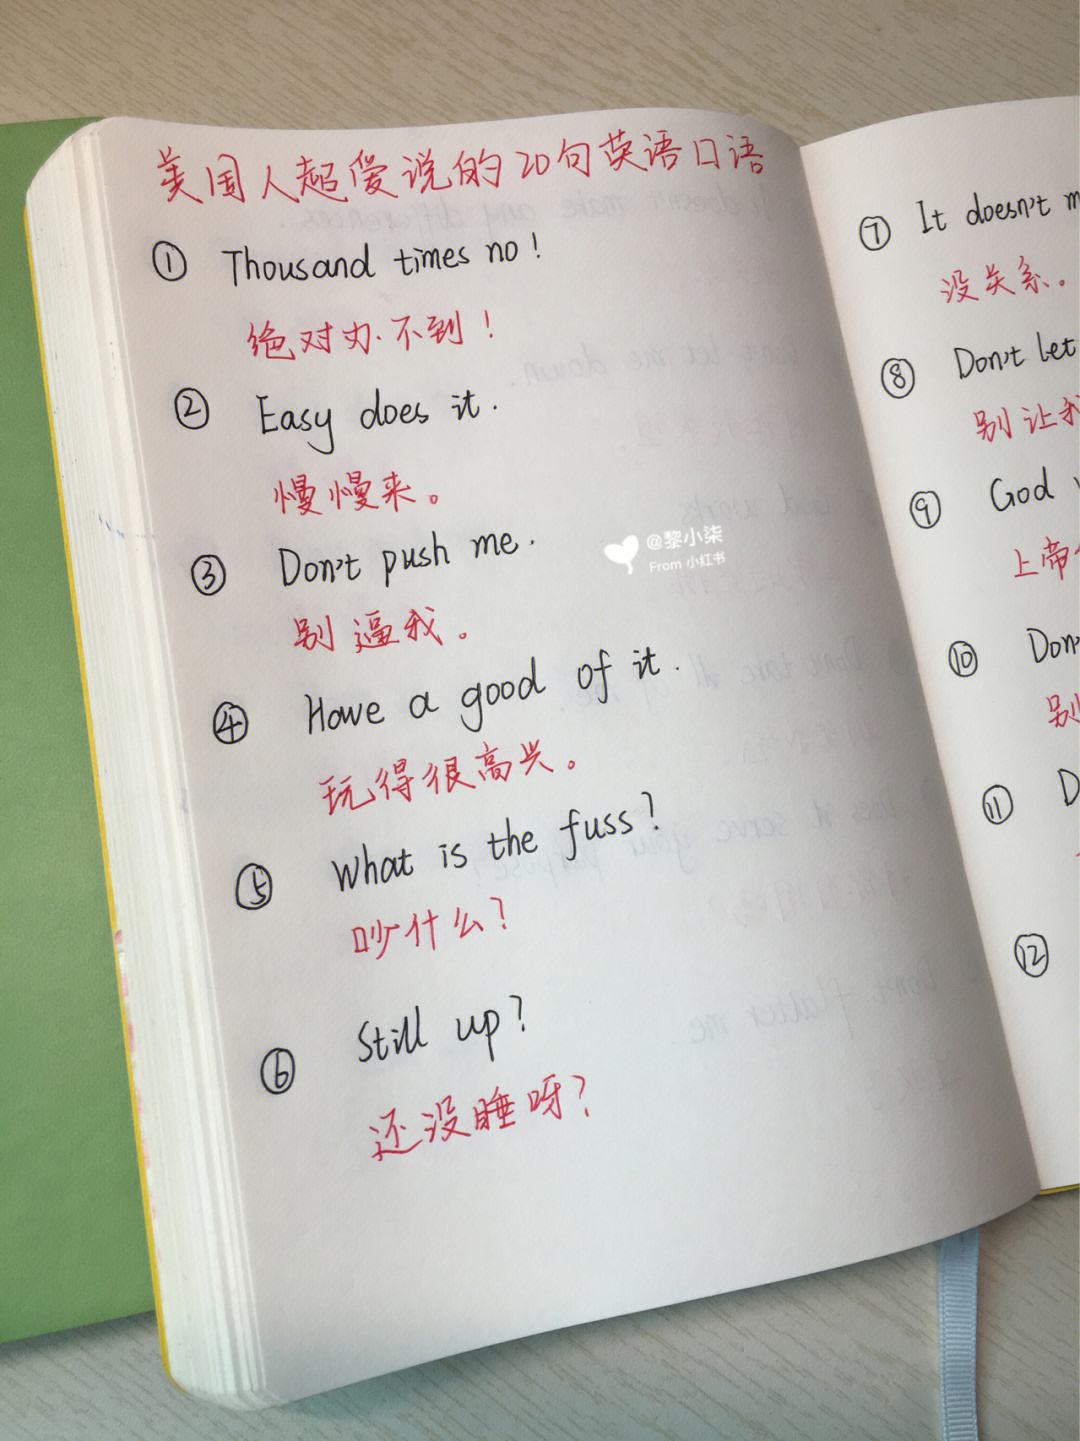 美国人超爱说的20句英语口语
① Thousand times no!
绝对办不到!
② Easy does it.
慢慢来。
③ Don't push me.
别逼我。
④ Have a good of it.
玩得很高兴。
⑤ What is the fuss?
吵什么?
⑥ Still up?
还没睡呀?
@黎小柒
From 小红书
⑦ It doesn't m
没关系。
⑧ Don't let
别让我
⑨ God
上帝
⑩ Don'
别
⑪ D
⑫